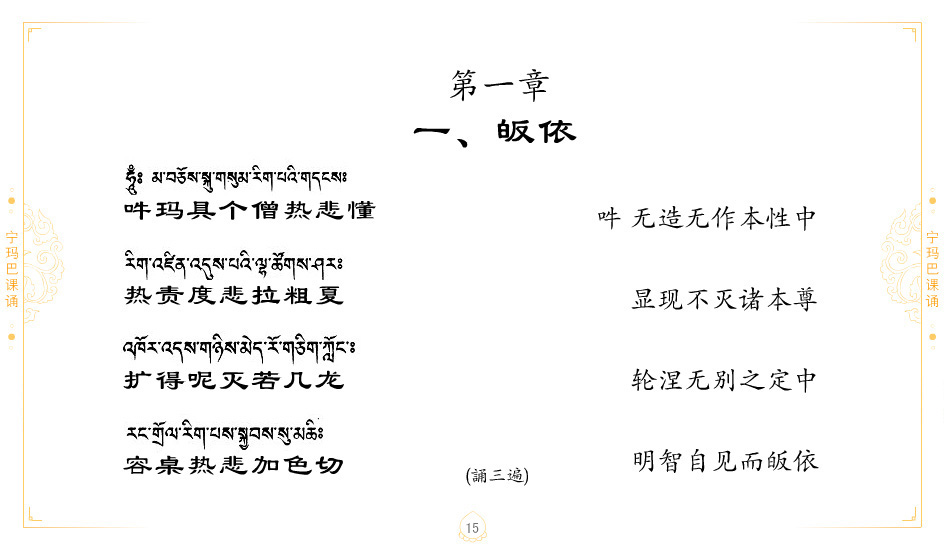 第一章
一、皈依
ཧཱུྃ༔ མ་བཅོས་སྐུ་གསུམ་རིག་པའི་གདངས༔
吽玛具个僧热悲懂
吽 无造无作本性中
རིག་འཛིན་འདུས་པའི་ལྷ་ཚོགས་ཤར༔
热责度悲拉粗夏
显现不灭诸本尊
འཁོར་འདས་གཉིས་མེད་རོ་གཅིག་ཀློང་༔
扩得呢灭若几龙
轮涅无别之定中
རང་གྲོལ་རིག་པས་སྐྱབས་སུ་མཆི༔
容桌热悲加色切
(誦三遍)
明智自见而皈依
宁玛巴课诵
宁玛巴课诵
15